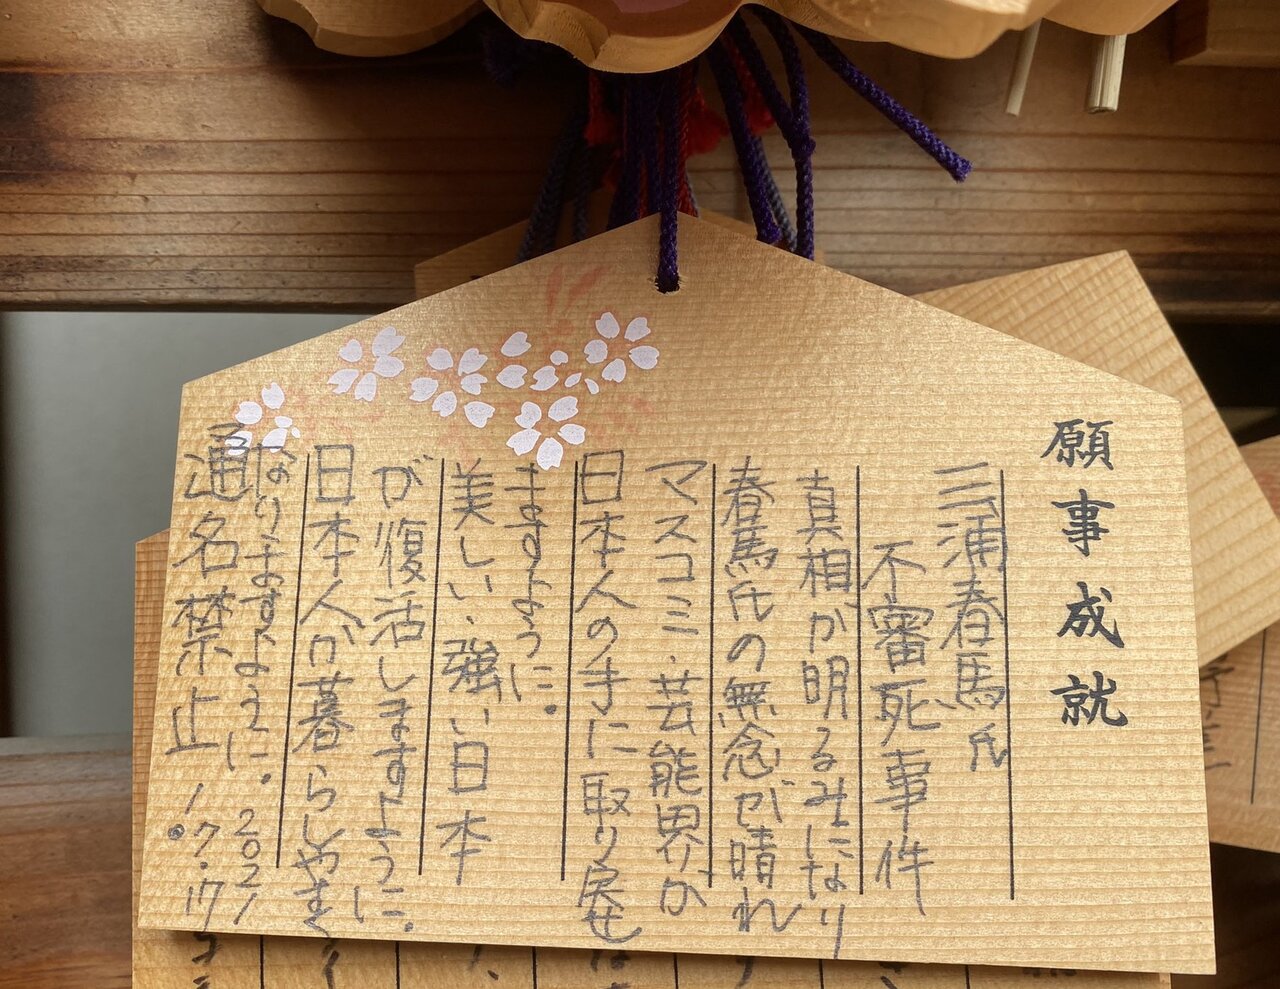 願事成就
三浦春馬氏
不審死事件
真相が明るみになり
春馬氏の無念が晴れ
マスコミ・芸能界が
日本人の手に取り戻せ
ますように。
美しい、強い日本
が復活しますように。
日本人が暮らしやすく
なりますように。2021
通名禁止 7.17